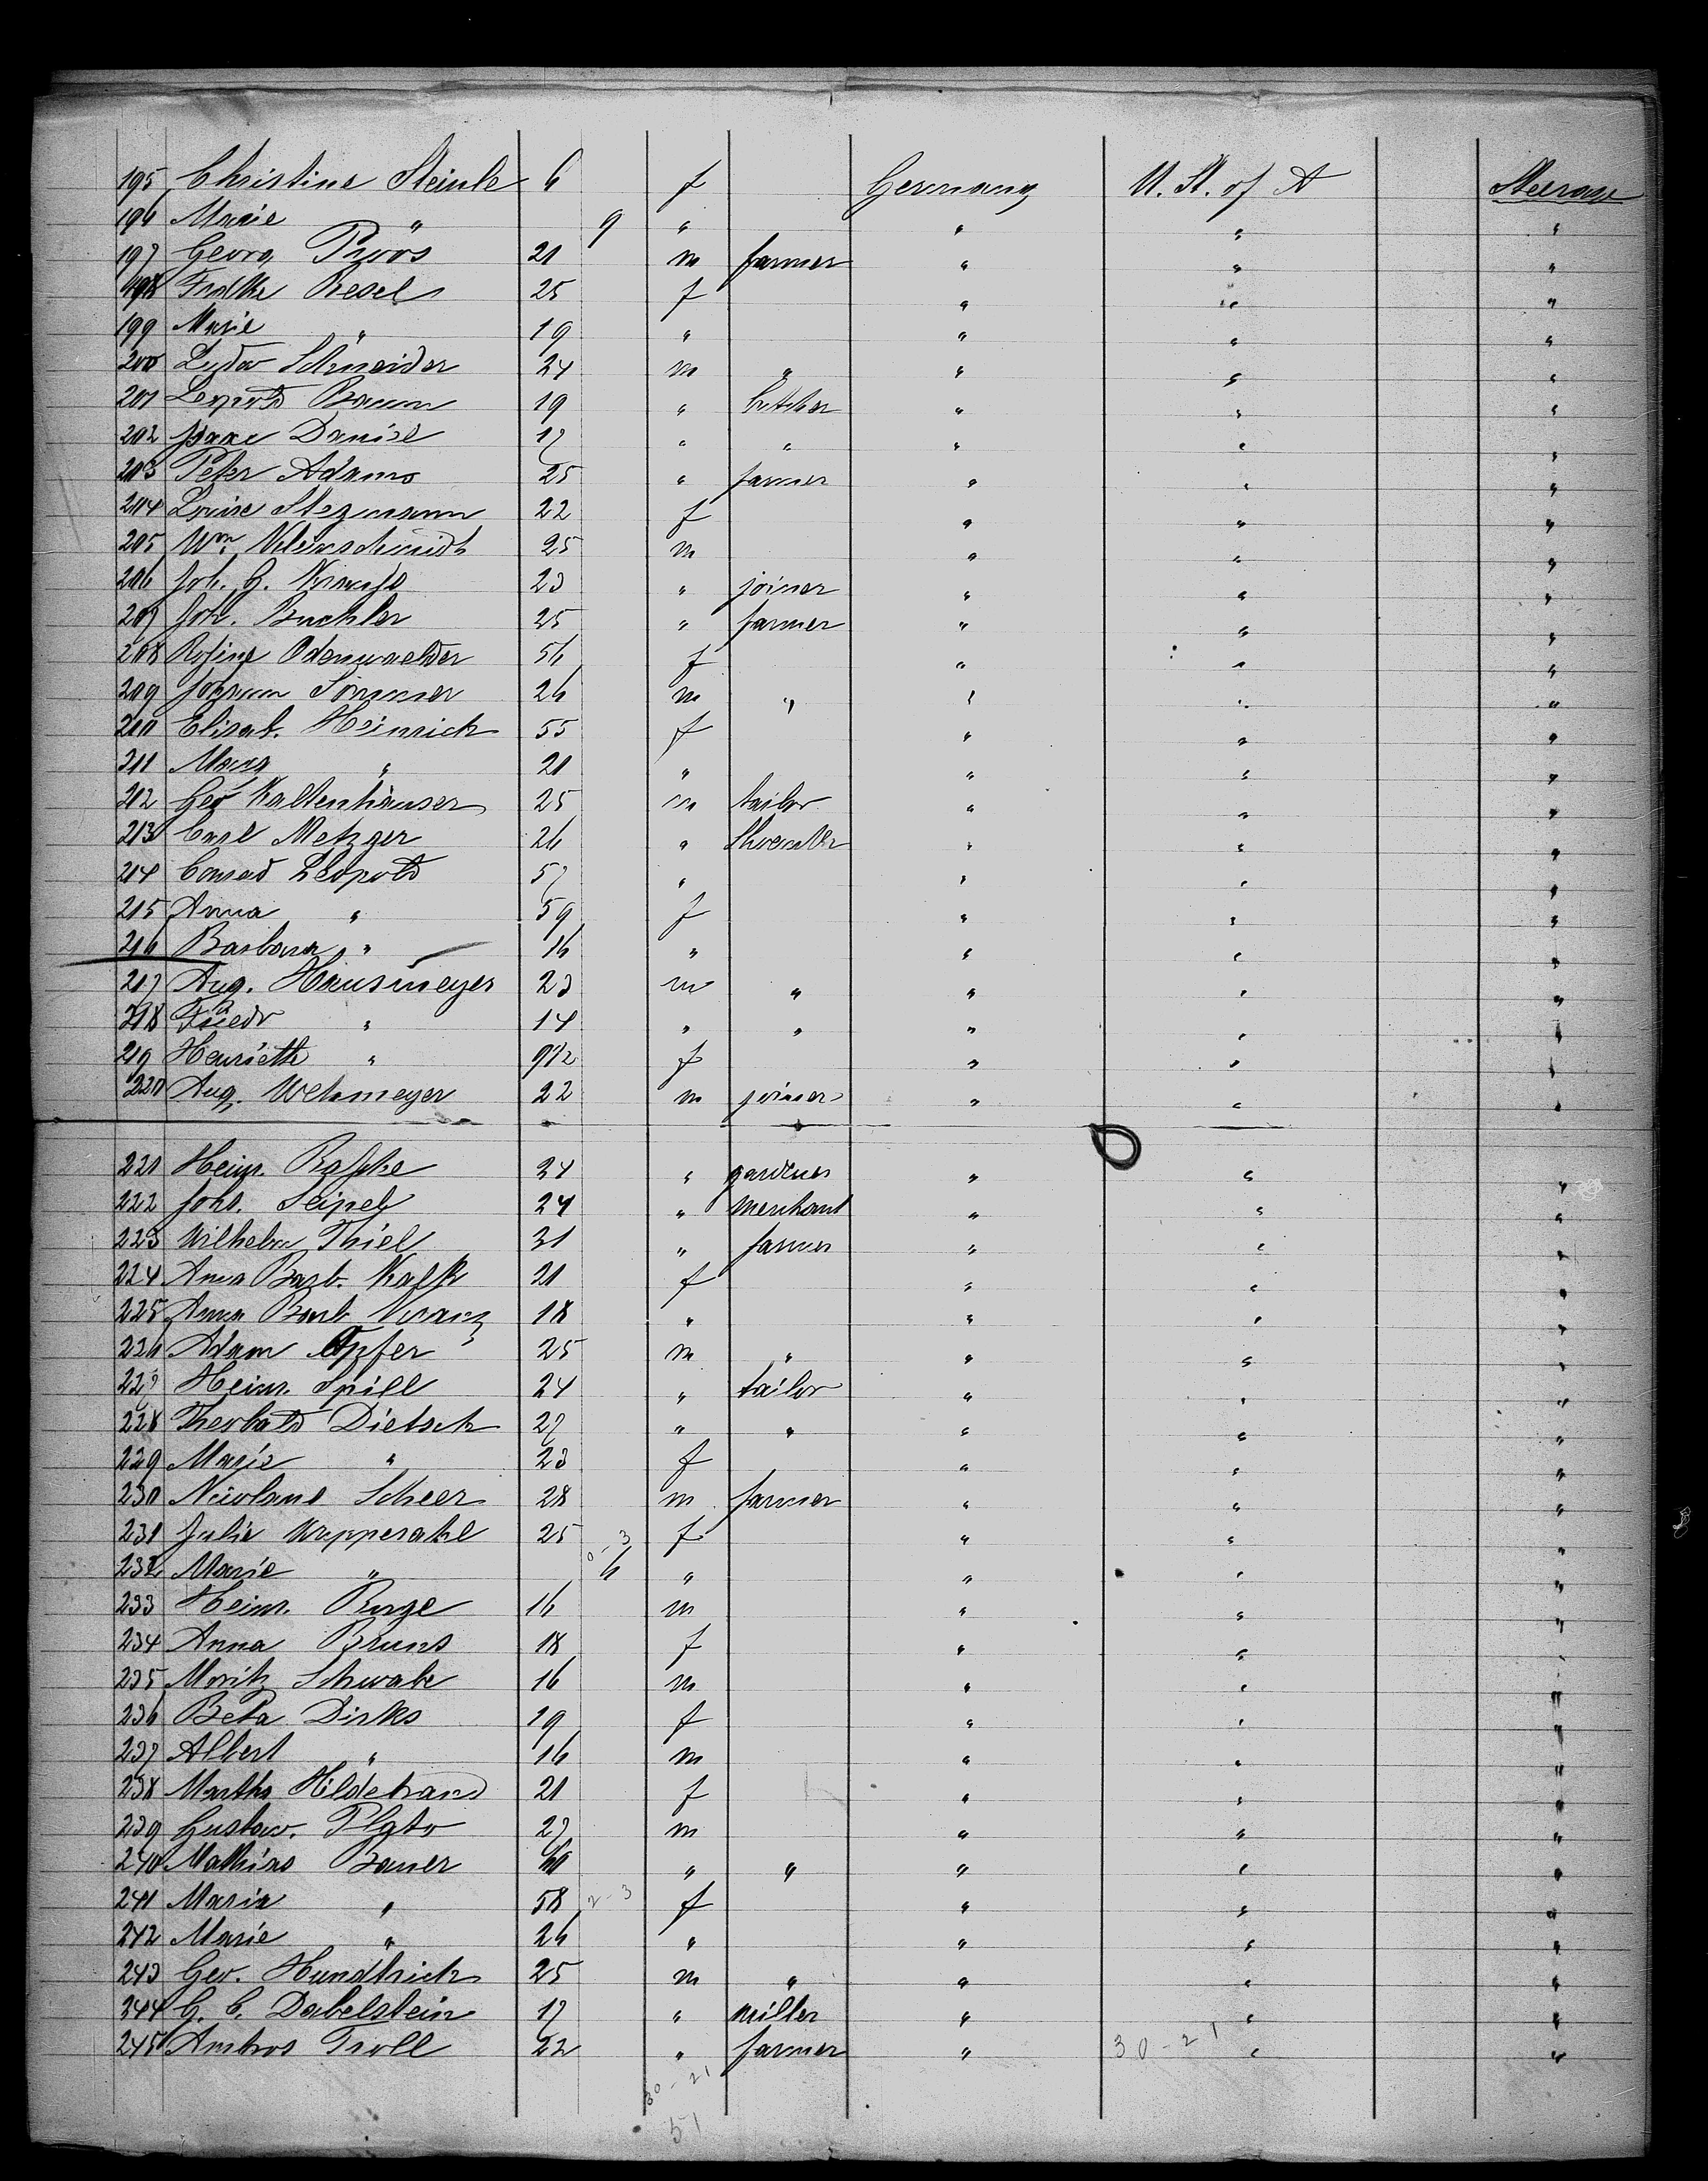 195 Christine Steinle 6 f Germany U. St. of A Steerage
196 Marie " 9 " " " "
197 Georg Proos 21 m farmer " " "
198 Fredke Resel 25 f " " "
199 Marie " 19 " " " "
200 Ludw Schneider 24 m " " " "
201 Leopold Baum 19 " butcher " " "
202 Isaac Daniel 17 " " " " "
203 Peter Adams 25 " farmer " " "
204 Louise Stegmann 22 f " " "
205 Wm. Kleinschmidt 25 m " " "
206 Joh. G. 23 " joiner " " "
207 Joh. Buchler 25 " farmer " " "
208 Rosine Odenwaelder 56 f " " "
209 Johann Sommer 26 m " " " "
210 Elisab. Heinrich 55 f " " "
211 Marg " 21 " " " "
212 Geo Kaltenhäuser 25 m tailor " " "
213 Carl Metzger 26 " " " "
214 Conrad Leopold 57 " " " "
215 Anna " 59 f " " "
216 Barbara " 16 " " " "
217 Aug. Hausmeyer 23 m " " " "
218 Friedr " 14 " " " " "
219 Henriette " 9 1/2 f " " "
220 Aug. Wehmeyer 22 m joiner " " "
221 Heinr. 34 " gardener " " "
222 Johs. Seipel 24 " merchant " " "
223 Wilhelm Thiel 31 " farmer " " "
224 Anna Barb. Kalk 21 f " " "
225 Anna Barb. Kranz 18 " " " "
226 Adam Opfer 25 m " " " "
227 Heinr. Spill 24 " tailor " " "
228 Theobald Dietsch 27 " " " " "
229 Marie " 23 f " " "
230 Nicolaus Scheer 28 m farmer " " "
231 Julie Wupperahl 25 0-3 f " " "
232 Marie " 6 " " " "
233 Heinr. Runge 16 m " " "
234 Anna Bruns 18 f " " "
235 Moritz Schwabe 16 m " " "
236 Beta Dirks 19 f " " "
237 Albert " 16 m " " "
238 Martha Hildebrand 21 f " " "
239 Gustav. Plato 27 m " " "
240 Mathias Bauer 60 " " " " "
241 Maria " 58 2-3 f " " "
242 Marie " 26 " " " "
243 Geo. Hundtrick 25 m " " " "
244 G. C. Dabelstein 17 " miller " " "
245 Ambros Troll 22 " farmer " 30-21 " "
30-21
51